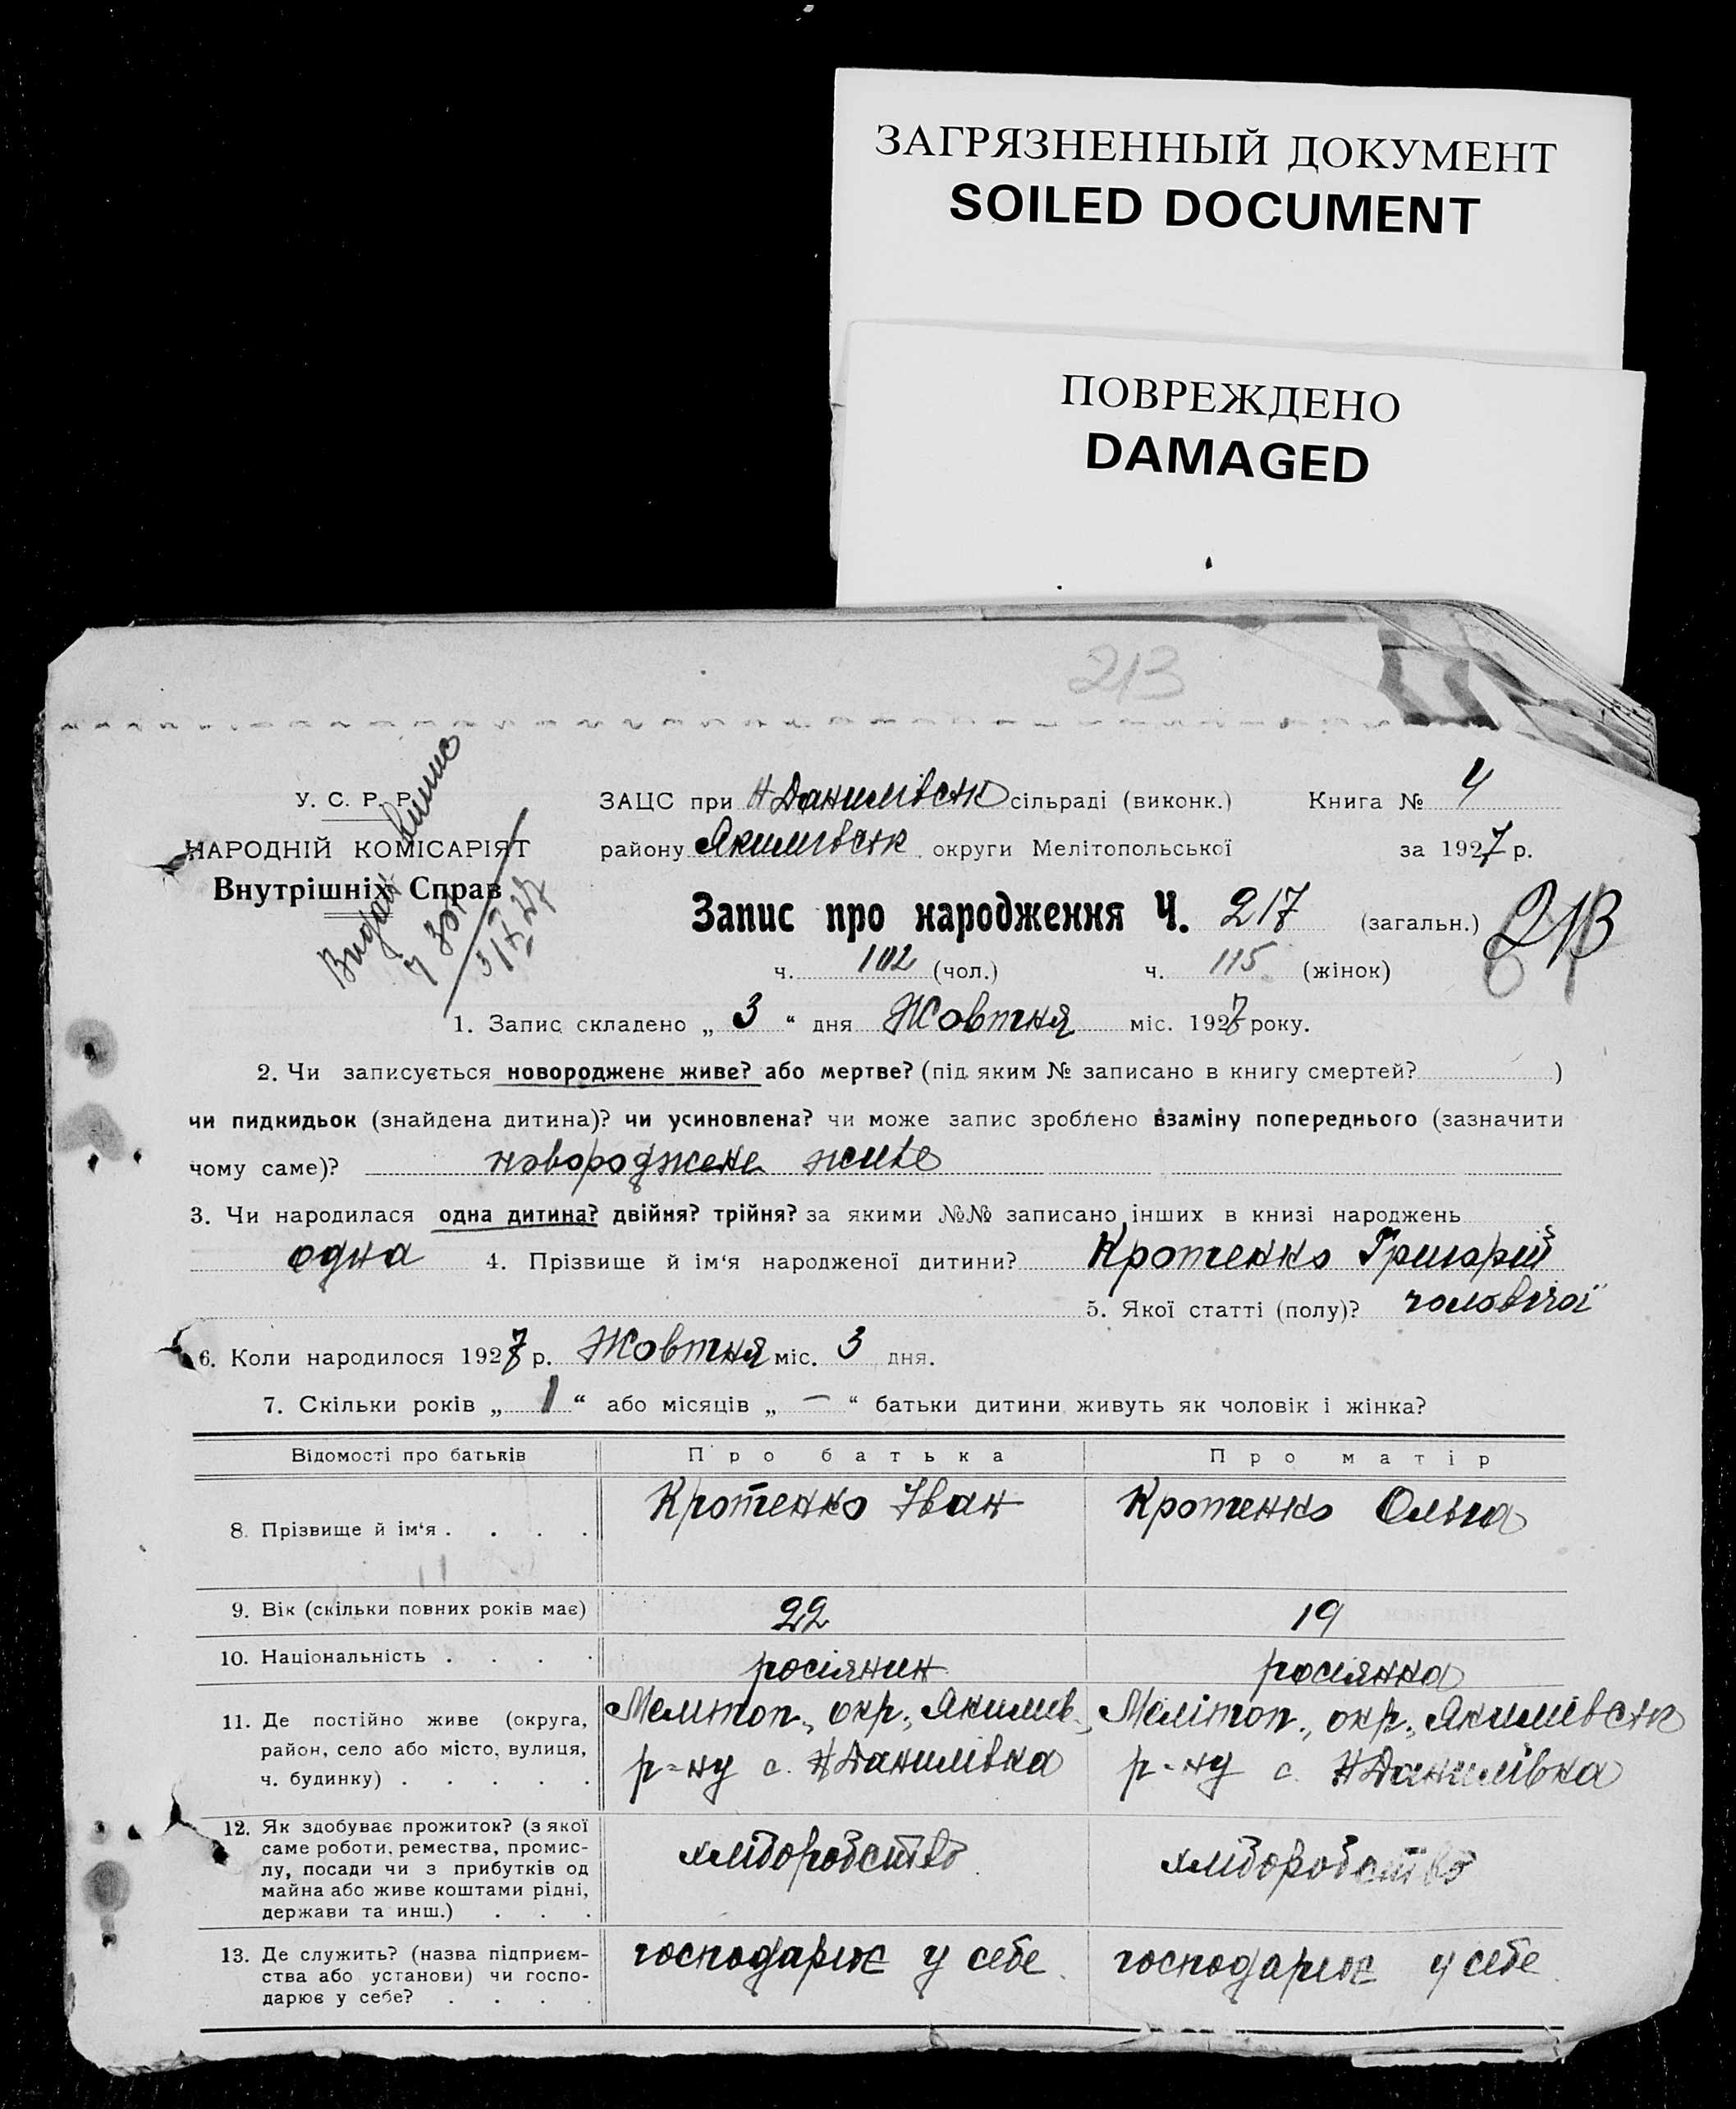 ЗАГРЯЗНЕННЫЙ ДОКУМЕНТ
SOILED DOCUMENT
ПОВРЕЖДЕНО
DAMAGED
213
У. С. Р. Р.
НАРОДНІЙ КОМІСАРІЯТ
Внутрішніх Справ
ЗАЦС при Н Данилівськ сільраді (виконк.) Книга № 4
району Якимівськ. округи Мелітопольської за 1927 р.
Запис про народження Ч. 217 (загальн.) 213
ч. 102 (чол.) ч. 115 (жінок)
1. Запис складено „ 3 “ дня Жовтня міс. 1927 року.
2. Чи записується новороджене живе? або мертве? (під яким № записано в книгу смертей? )
чи пидкидьок (знайдена дитина)? чи усиновлена? чи може запис зроблено взаміну попереднього (зазначити
чому саме)? новороджене живе
3. Чи народилася одна дитина? двійня? трійня? за якими №№ записано інших в книзі народжень
одна 4. Прізвище й ім‘я народженої дитини? Кротенко Григорій
5. Якої статті (полу)? чоловічої
6. Коли народилося 1927 р. Жовтня міс. 3 дня.
7. Скільки років „ 1 “ або місяців „ — “ батьки дитини живуть як чоловік і жінка?
Відомості про батьків Про батька Про матір
8. Прізвище й ім‘я . . . . Кротенко Іван Кротенко Ольга
9. Вік (скільки повних років має) 22 19
10. Національність . . . . росіянин росіянка
11. Де постійно живе (округа, Мелітоп., окр., Якимів. Мелітоп., окр., Якимівськ
район, село або місто, вулиця, р-ну с. Н Данилівка р-ну с. Н Данилівка
ч. будинку) . . . . .
12. Як здобуває прожиток? (з якої
саме роботи, ремества, промис-
лу, посади чи з прибутків од хліборобство хліборобство
майна або живе коштами рідні,
держави та инш.) . . .
13. Де служить? (назва підприєм- господарює у себе господарює у себе
ства або установи) чи госпо-
дарює у себе? . . . .